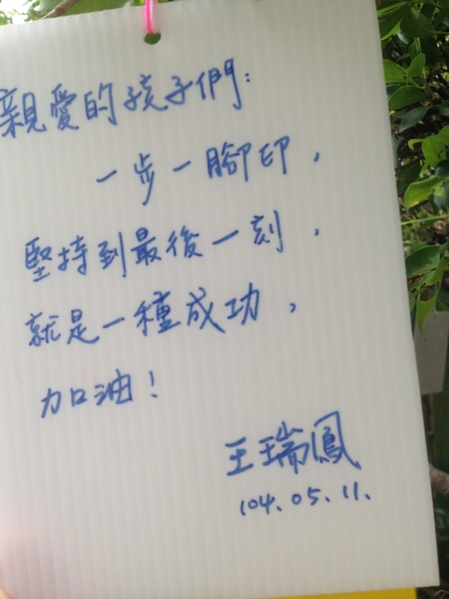 親愛的孩子們：
一步一腳印，
堅持到最後一刻，
就是一種成功，
加油！
王瑞鳳
104.05.11.